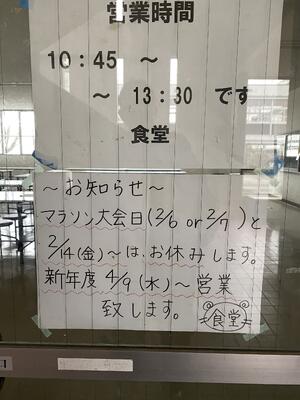 営業時間
10:45 ～
～ 13:30 です
食堂
～お知らせ～
マラソン大会日(2/6 or 2/7)と
2/14(金)～は、お休みします。
新年度 4/9(水)～営業
致します。
食堂
口